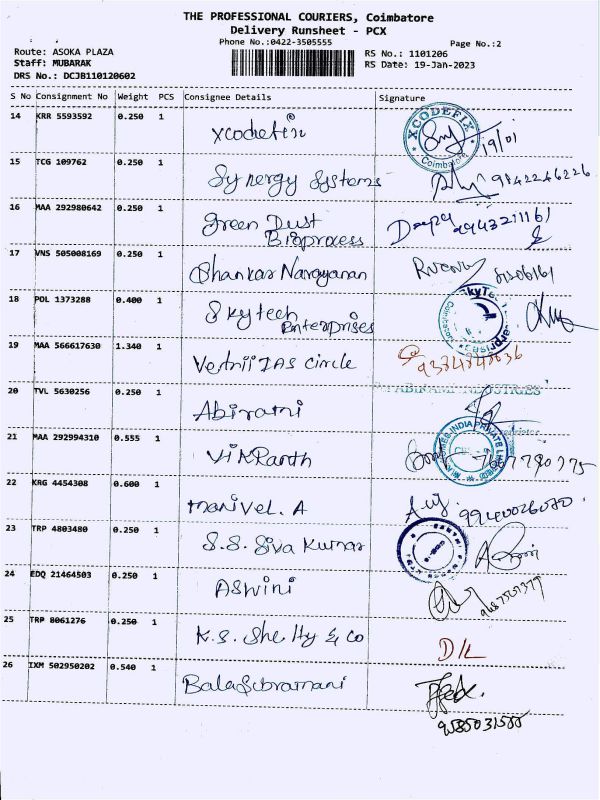 THE PROFESSIONAL COURIERS, Coimbatore
Delivery Runsheet - PCX
Phone No.:0422-3505555
Page No.:2
Route: ASOKA PLAZA
RS No.: 1101206
Staff: MUBARAK
RS Date: 19-Jan-2023
DRS No.: DCJB110120602
S No Consignment No Weight PCS Consignee Details Signature
14 KRR 5593592 0.250 1 Xcodefix
XCODEFIX
Coimbatore
19/01
15 TCG 109762 0.250 1 Synergy Systems 9842246226
16 MAA 292980642 0.250 1 Green Dust
Bioprocess
Deepa
17 VNS 505008169 0.250 1 Shankar Narayanan
18 POL 1373288 0.400 1 Skytech
Enterprises
19 MAA 566617630 1.340 1 Vetrii IAS Circle
20 TVL 5630256 0.250 1 Abirami
21 MAA 292994310 0.555 1 Vikranth
22 KRG 4454308 0.600 1 Manivel. A
23 TRP 4803480 0.250 1 S.S. Siva Kumar
24 EDQ 21464503 0.250 1 Aswini
25 TRP 8061276 0.250 1 K.S. Shetty & Co D/L
26 IXM 502950202 0.540 1 Balasubramani